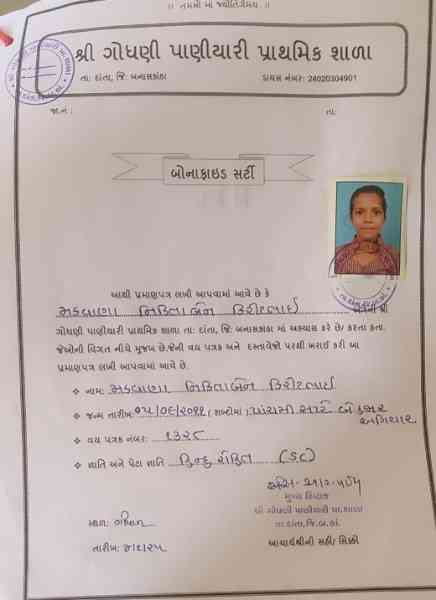 ॥ તમસો મા જ્યોતિર્ગમય ॥
શ્રી ગોધણી પાણીયારી પ્રાથમિક શાળા
તા: દાંતા, જિ: બનાસકાંઠા ડાયસ નંબર: 24020304901
જા.નં : તા:
બોનાફાઇડ સર્ટી
આથી પ્રમાણપત્ર લખી આપવામાં આવે છે કે
મકવાણા નિકિતાબેન કિરીટભાઈ શ્રી
ગોધણી પાણીયારી પ્રાથમિક શાળા તા: દાંતા, જિ: બનાસકાંઠા માં અભ્યાસ કરે છે/ કરતા હતા.
જેઓની વિગત નીચે મુજબ છે.જેની વય પત્રક અને દસ્તાવેજો પરથી ખરાઈ કરી આ
પ્રમાણપત્ર લખી આપવામાં આવે છે.
❖ નામ: મકવાણા નિકિતાબેન કિરીટભાઈ
❖ જન્મ તારીખ: ૦૫/૦૬/૨૦૧૧ ( શબ્દોમાં ) પાંચમી બે હજાર
અગિયાર
❖ વય પત્રક નંબર: ૧૩૨૮
❖ જ્ઞાતિ અને પેટા જ્ઞાતિ હિન્દુ રોહિત (SC)
મુખ્ય શિક્ષક
શ્રી ગોધણી પાણીયારી પ્રા.શાળા
તા.દાંતા,જિ.બ.કાં.
સ્થળ:
તારીખ: આચાર્યશ્રીની સહી/ સિક્કો